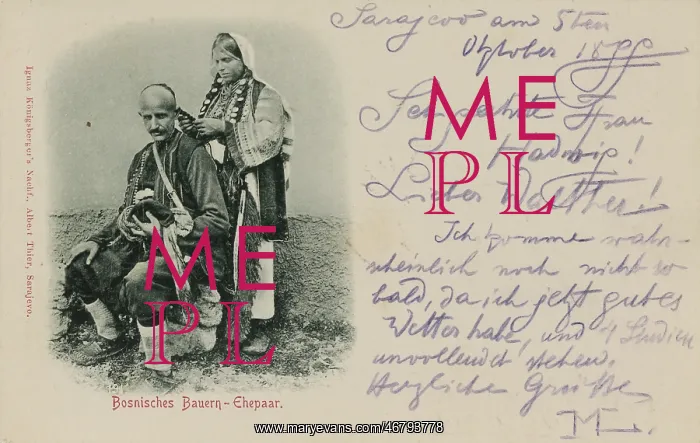 Sarajevo am 5ten
Oktober 1899
Sehr geehrte Frau
Hedwig!
Lieber Walther!
Ich komme wahr-
scheinlich noch nicht so
bald, da ich jetzt gutes
Wetter habe, und 4 Studien
unvollendet stehen.
Herzliche Grüße
M.
Ignaz Königsberger's Nachf., Albert Thier, Sarajevo.
Bosnisches Bauern-Ehepaar.
ME
PL
ME
PL
www.maryevans.com/46793778